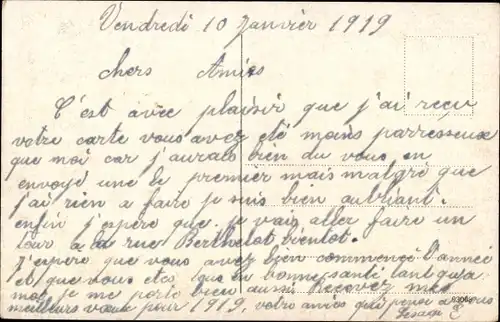 Vendredi 10 Janvier 1919
chers Amies
C'est avec plaisir que j'ai reçu
votre carte vous avez été moins parresseux
que moi car j'aurais bien du vous en
envoyé une le premier mais malgré que
j'ai rien a faire je suis bien oubliant.
enfin j'espère que je vais aller faire un
tour a a rue Berthelot bientot.
J'espere que vous avez bien commencé l'année
et que vous etes que en bonne santé tant qu'a
moi je me porte bien aussi Recevez mes
meilleurs vœux pour 1919, votre amies qui pense a vous
Lesage E